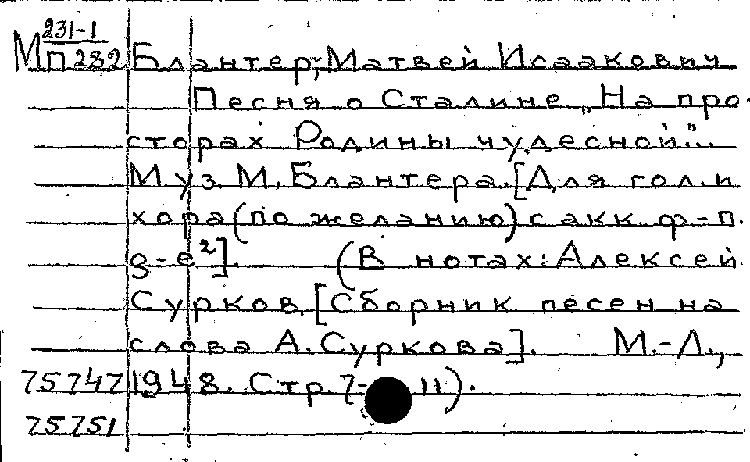 231-1
М П 282 Блантер, Матвей Исаакович
Песня о Сталине „На про-
сторах Родины чудесной"...
Муз. М. Блантера. [Для гол. и
хора (по желанию) с акк. ф-п.
g-e²]. (В нотах: Алексей
Сурков. [Сборник песен на
слова А. Суркова]. М.-Л.,
75747 1948. Стр. 7-11).
75751